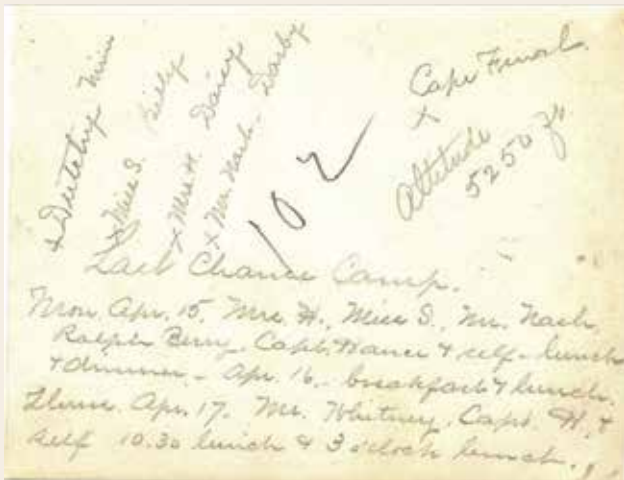 x Dutchy
x Miss S. Billy
x Mrs. H. Daisy
x Mr. Nash - Darby
Cape Final
x
Altitude
5250 ft
102
Last Chance Camp.
Mon. Apr. 15. Mrs. H., Miss S., Mr. Nash
Ralph Berry, Capt. Hance & self - lunch
& dinner. - Apr. 16. breakfast & lunch.
Apr. 17. Mr. Whitney, Capt. H. &
self 10.30 lunch & 3 o'clock lunch.